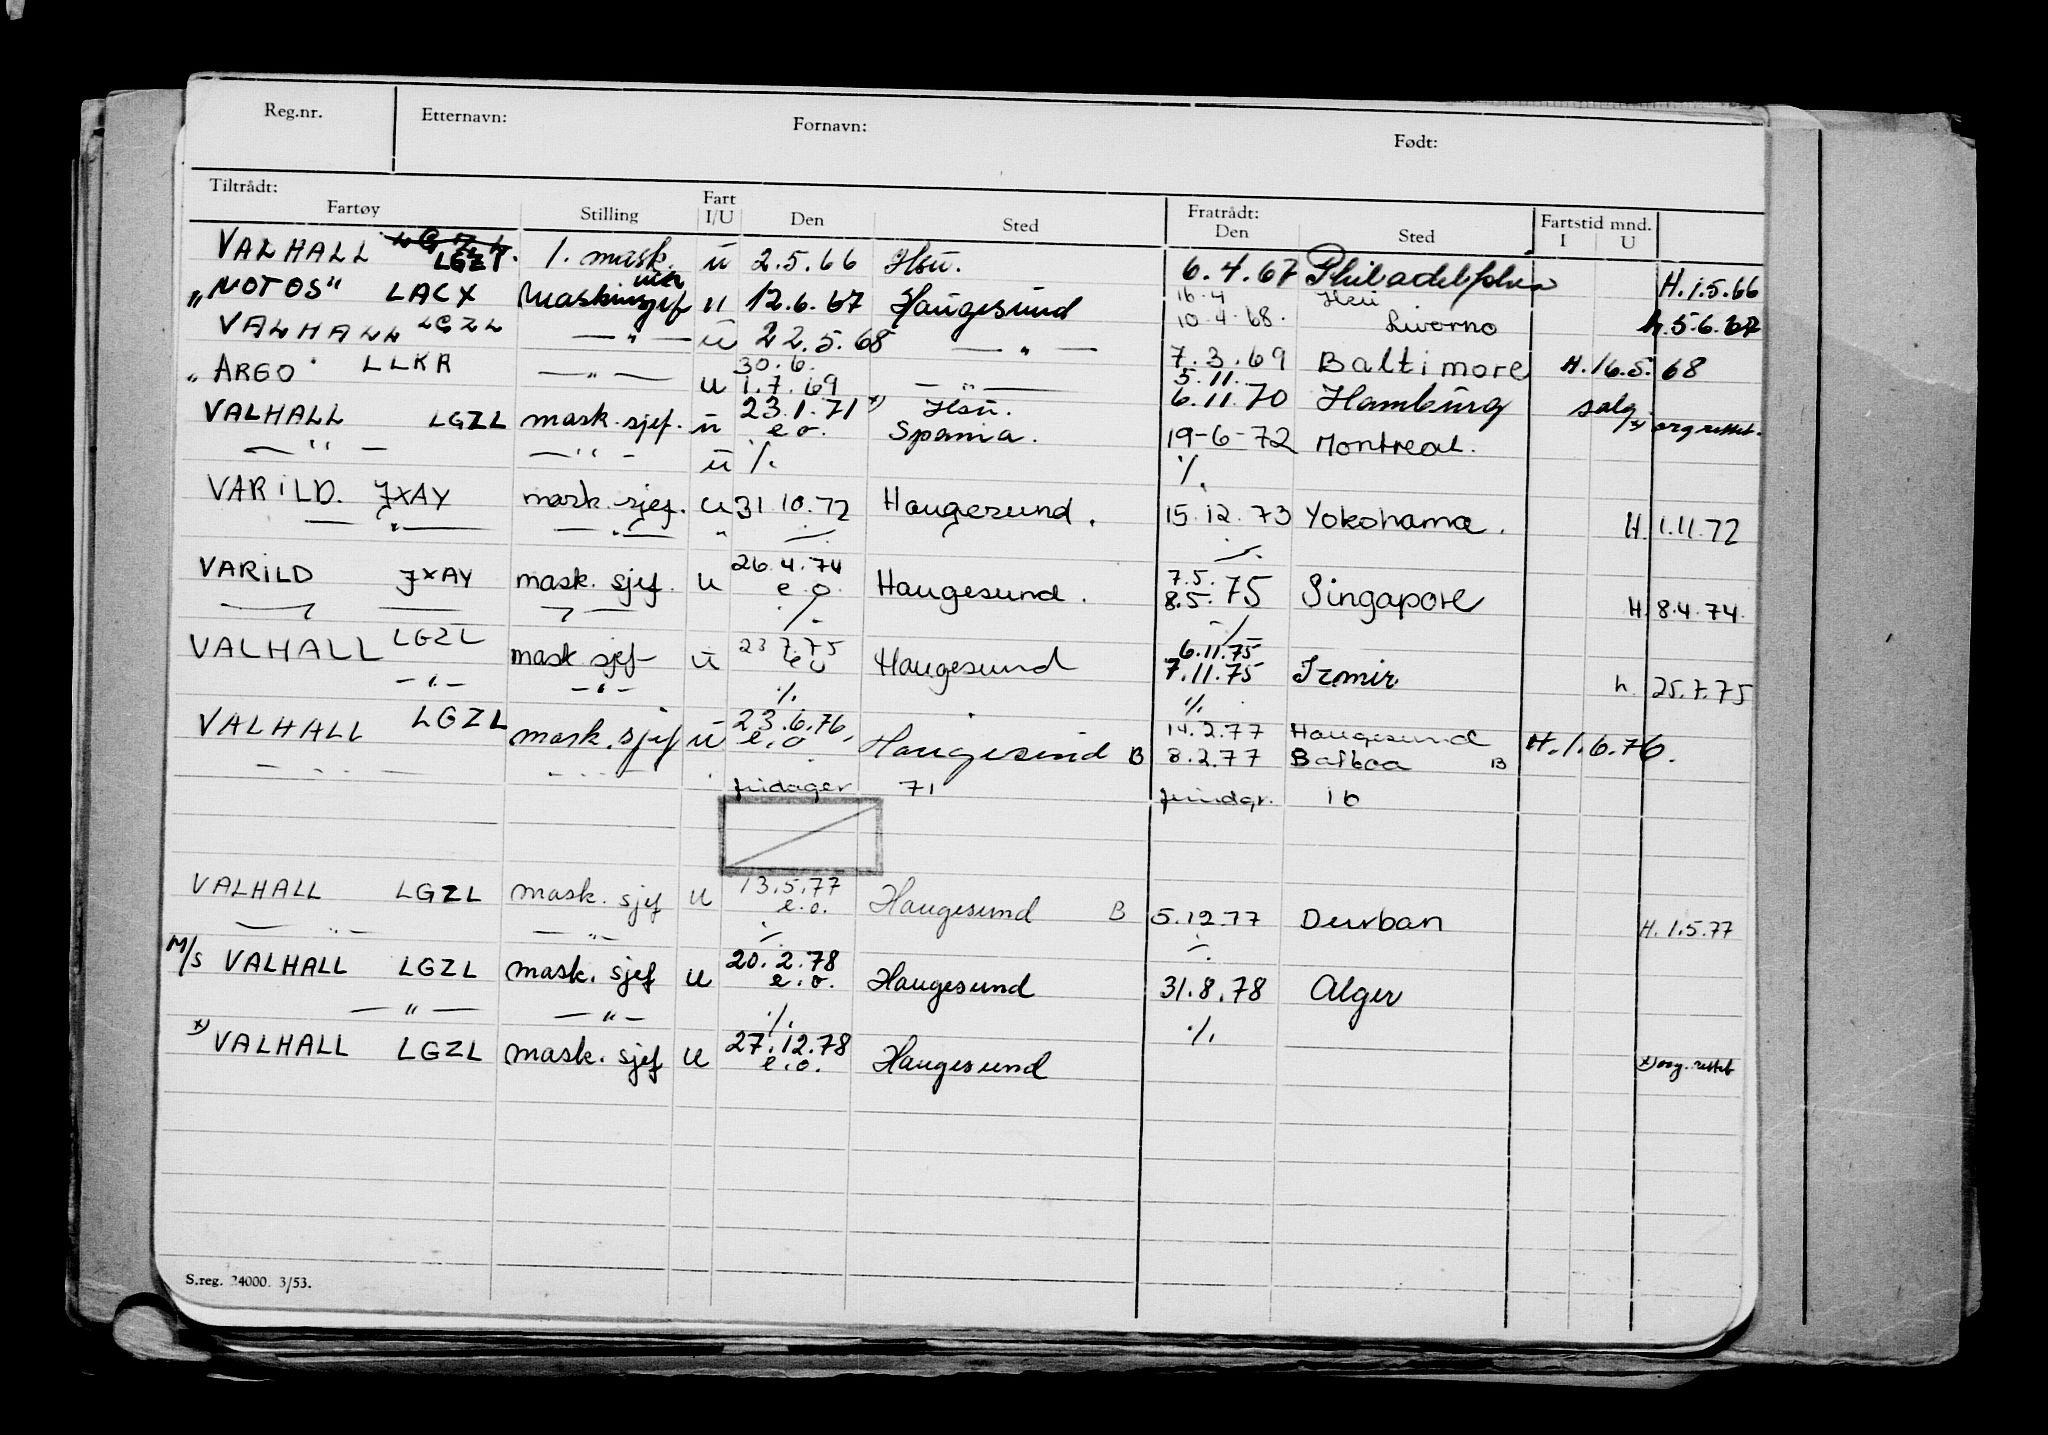 Reg.nr. Etternavn: Fornavn: Født:
Tiltrådt: Fartøy Stilling Fart I/U Den Sted Fratrådt: Den Sted Fartstid mnd. I U
VALHALL LGZL 1. mask. u 2.5.66 Hsu. 6.4.67 Philadelphia H.1.5.66
16.4 Hsu
"NOTOS" LACX Maskinsjef u 12.6.67 Haugesund 10.4.68. Livorno h.5.6.67
VALHALL LGZL — " — u 22.5.68 — " — 7.3.69 Baltimore H.16.5.68
30.6. 5.11.
"ARGO" LLKR — " — u 1.7.69 — " — 6.11.70 Hamburg salg
VALHALL LGZL mask.sjef. u 23.1.71 x) Hsu. x) org rettet.
e.o. Spania. 19-6-72 Montreal.
— " — — " — u ·/. ·/.
VARILD. JXAY mask.sjef. u 31.10.72 Haugesund. 15.12.73 Yokohama. H. 1.11.72
— " — — " — " ·/. ·/.
VARILD JXAY mask. sjef. u 26.4.74 e.o. Haugesund. 7.5. 8.5.75 Singapore H. 8.4.74.
·/. ·/.
VALHALL LGZL mask sjef u 23.7.75 eo Haugesund 6.11.75 7.11.75 Izmir h. 25.7.75
— " — — " — ·/. ·/.
VALHALL LGZL mask.sjef u 23.6.76, e.o Haugesund B 14.2.77 Haugesund H.1.6.76.
8.2.77 Balboa B
fridager 71 fridgr. 16
VALHALL LGZL mask. sjef u 13.5.77 e.o. Haugesund B 5.12.77 Durban H. 1.5.77
— " — — " — ·/. ·/.
M/S VALHALL LGZL mask. sjef u 20.2.78 e.o. Haugesund 31.8.78 Alger
— " — — " — ·/. ·/.
x) VALHALL LGZL mask. sjef u 27.12.78 e.o. Haugesund x) org. rettet
S.reg. 24000. 3/53.